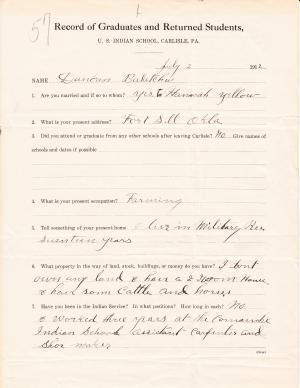 57
Record of Graduates and Returned Students,
U. S. INDIAN SCHOOL, CARLISLE, PA.
July 2 1912
NAME Duncan Balatchu
1. Are you married and if so to whom? yes to Hannah yellow
2. What is your present address? Fort Sill Okla
3. Did you attend or graduate from any other schools after leaving Carlisle? No Give names of
schools and dates if possible
4. What is your present occupation? Farming
5. Tell something of your present home I live in Military Res
Seventeen years
6. What property in the way of land, stock, buildings, or money do you have? I dont
own any land I have a 2 Room House
I have some Cattle and horses
7. Have you been in the Indian Service? In what positions? How long in each? No
I worked three years at the Comanche
Indian School assistant Carpenter and
Shoe maker